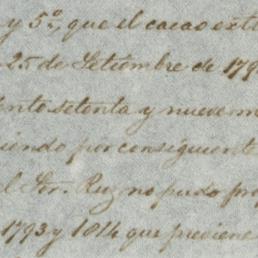 y 5º, que el cacao ext
25 de Setiembre de 179
ento setenta y nueve m
iendo por consiguient
el Sor. Ruz no pudo pro
1793 y 1814 que previene